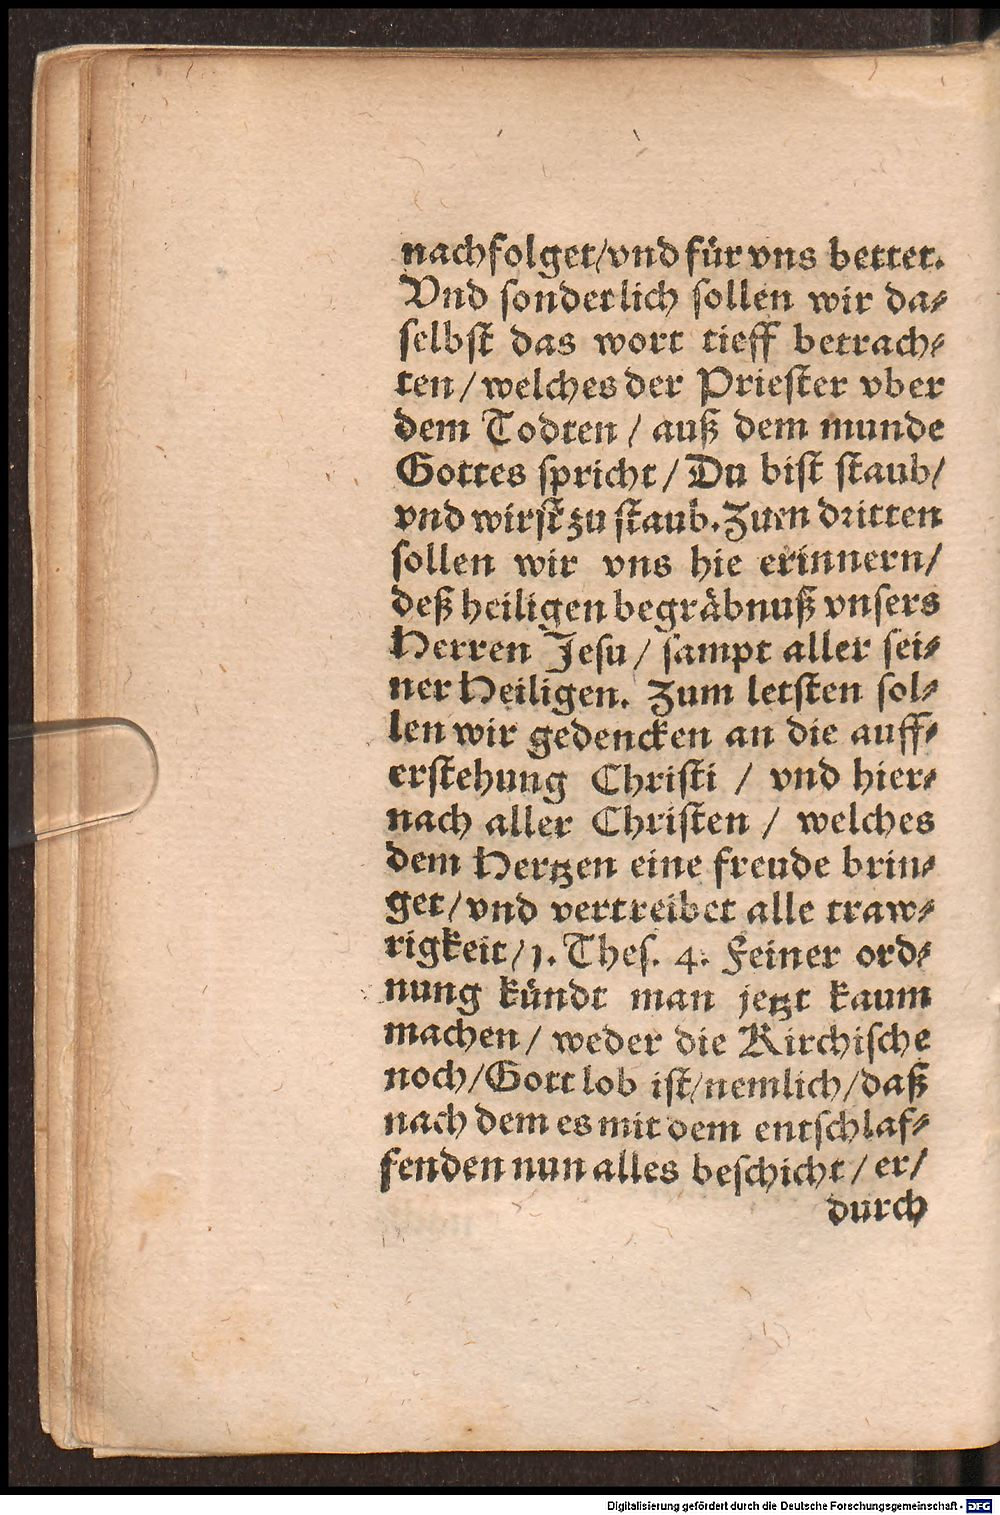 nachfolget/vnd für vns bettet.
Vnd sonderlich sollen wir da⸗
selbst das wort tieff betrach⸗
ten / welches der Priester vber
dem Todten / auß dem munde
Gottes spricht / Du bist staub/
vnd wirst zu staub. Zum dritten
sollen wir vns hie erinnern/
deß heiligen begräbnuß vnsers
Herren Jesu / sampt aller sei⸗
ner Heiligen. Zum letsten sol⸗
len wir gedencken an die auff⸗
erstehung Christi / vnd hier⸗
nach aller Christen / welches
dem Hertzen eine freude brin⸗
get/vnd vertreibet alle traw⸗
rigkeit/1. Thes. 4. Feiner ord⸗
nung kündt man jetzt kaum
machen / weder die Kirchische
noch/Gott lob ist/nemlich/daß
nach dem es mit dem entschlaf⸗
fenden nun alles beschicht / er/
durch
Digitalisierung gefördert durch die Deutsche Forschungsgemeinschaft - DFG